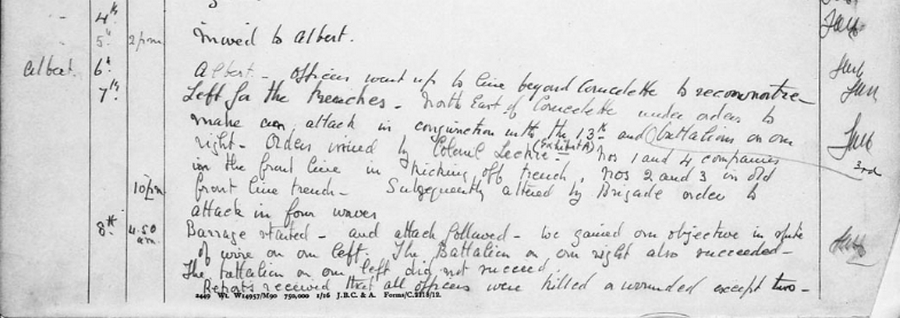 4th
5th 2 pm Moved to Albert.
Albert. 6th Albert - Officers went up to line beyond Courcelette to reconnoitre -
7th Left for the trenches - North East of Courcelette under orders to
make an attack in conjunction with the 13th and battalions on our
3rd
right - Orders issued by Colonel Leckie - (Exhibit A) Nos 1 and 4 companies
in the front line in kicking off trench, Nos 2 and 3 in old
10 pm front line trench - Subsequently altered by Brigade order to
attack in four waves
8th 4.50 am. Barrage started - and attack followed - We gained our objective in spite
of wire on our left. The Battalion on our right also succeeded -
The battalion on our left did not succeed.
Reports received that all officers were killed or wounded except two -
2449 Wt. W14957/M90 750,000 1/16 J.B.C. & A. Forms/C.2118/12.